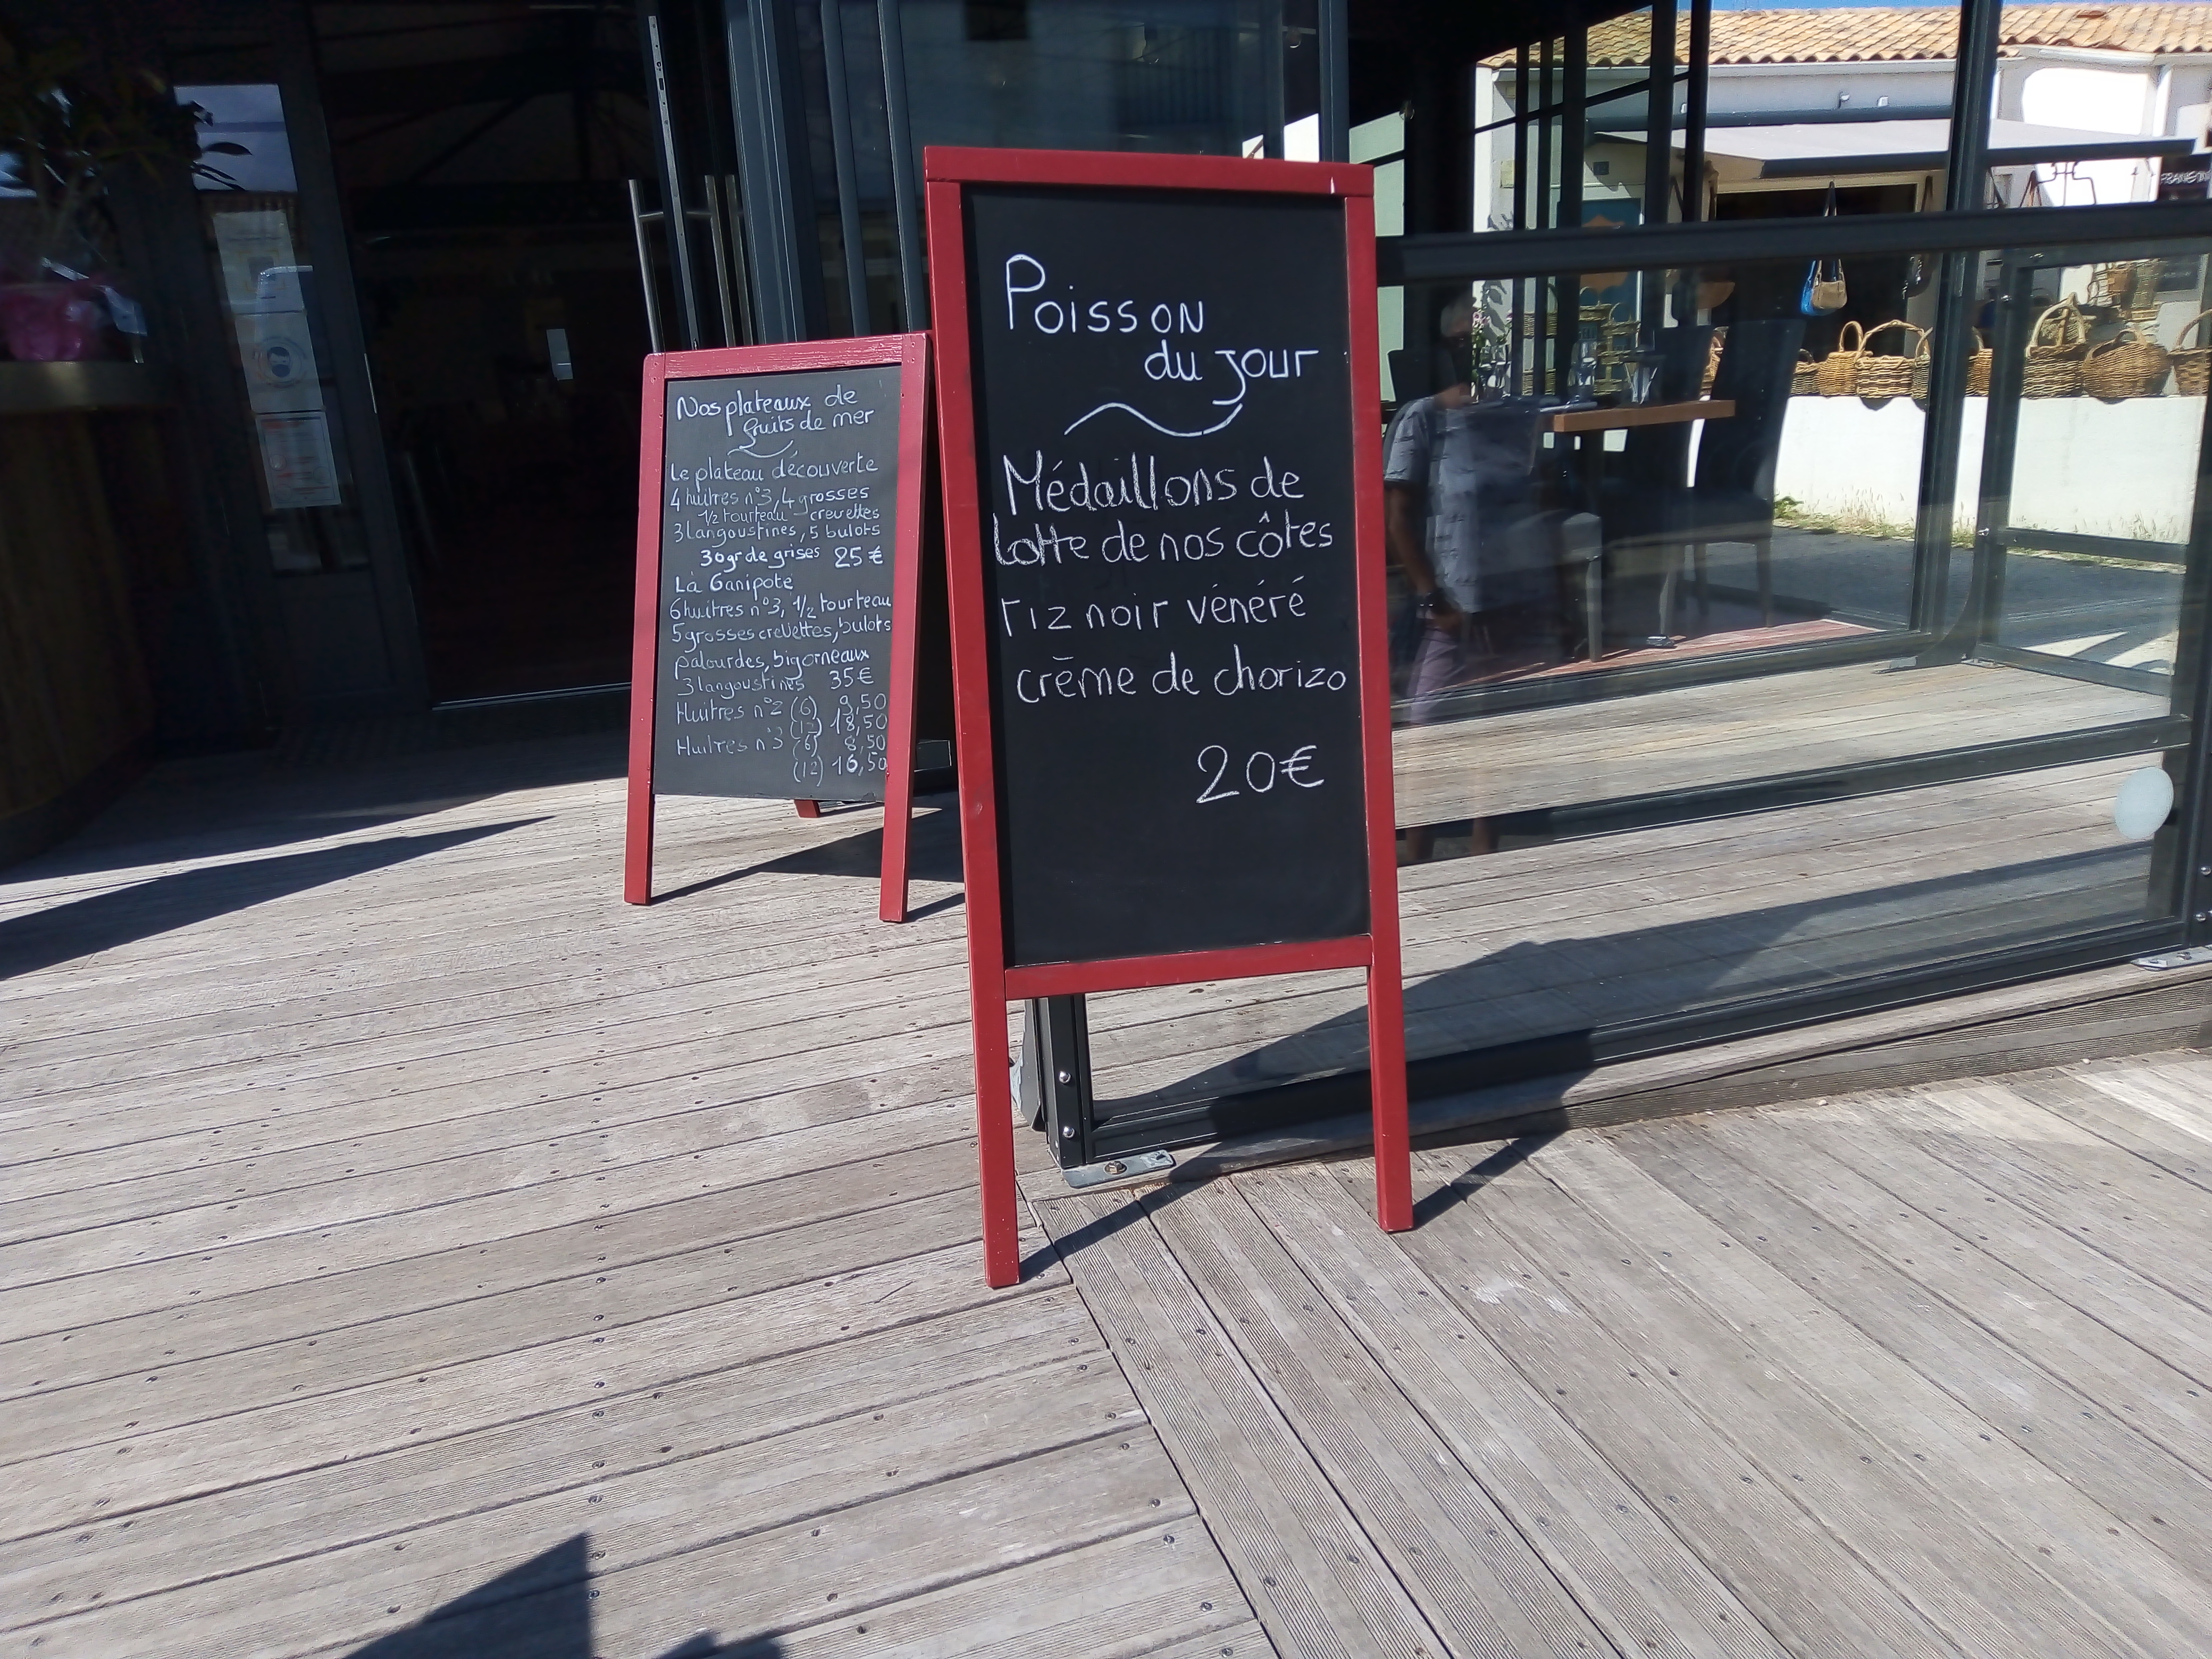 Poisson
du jour
Médaillons de
lotte de nos côtes
riz noir vénéré
crème de chorizo
20€
Nos plateaux de
fruits de mer
Le plateau découverte
4 huîtres n°3, 4 grosses
1/2 tourteau crevettes
3 langoustines, 5 bulots
30gr de grises 25€
La Ganipote
6 huîtres n°3, 1/2 tourteau
5 grosses crevettes, bulots
palourdes, bigorneaux
3 langoustines 35€
Huîtres n°2 (6) 9,50
(12) 18,50
Huîtres n°3 (6) 8,50
(12) 16,50